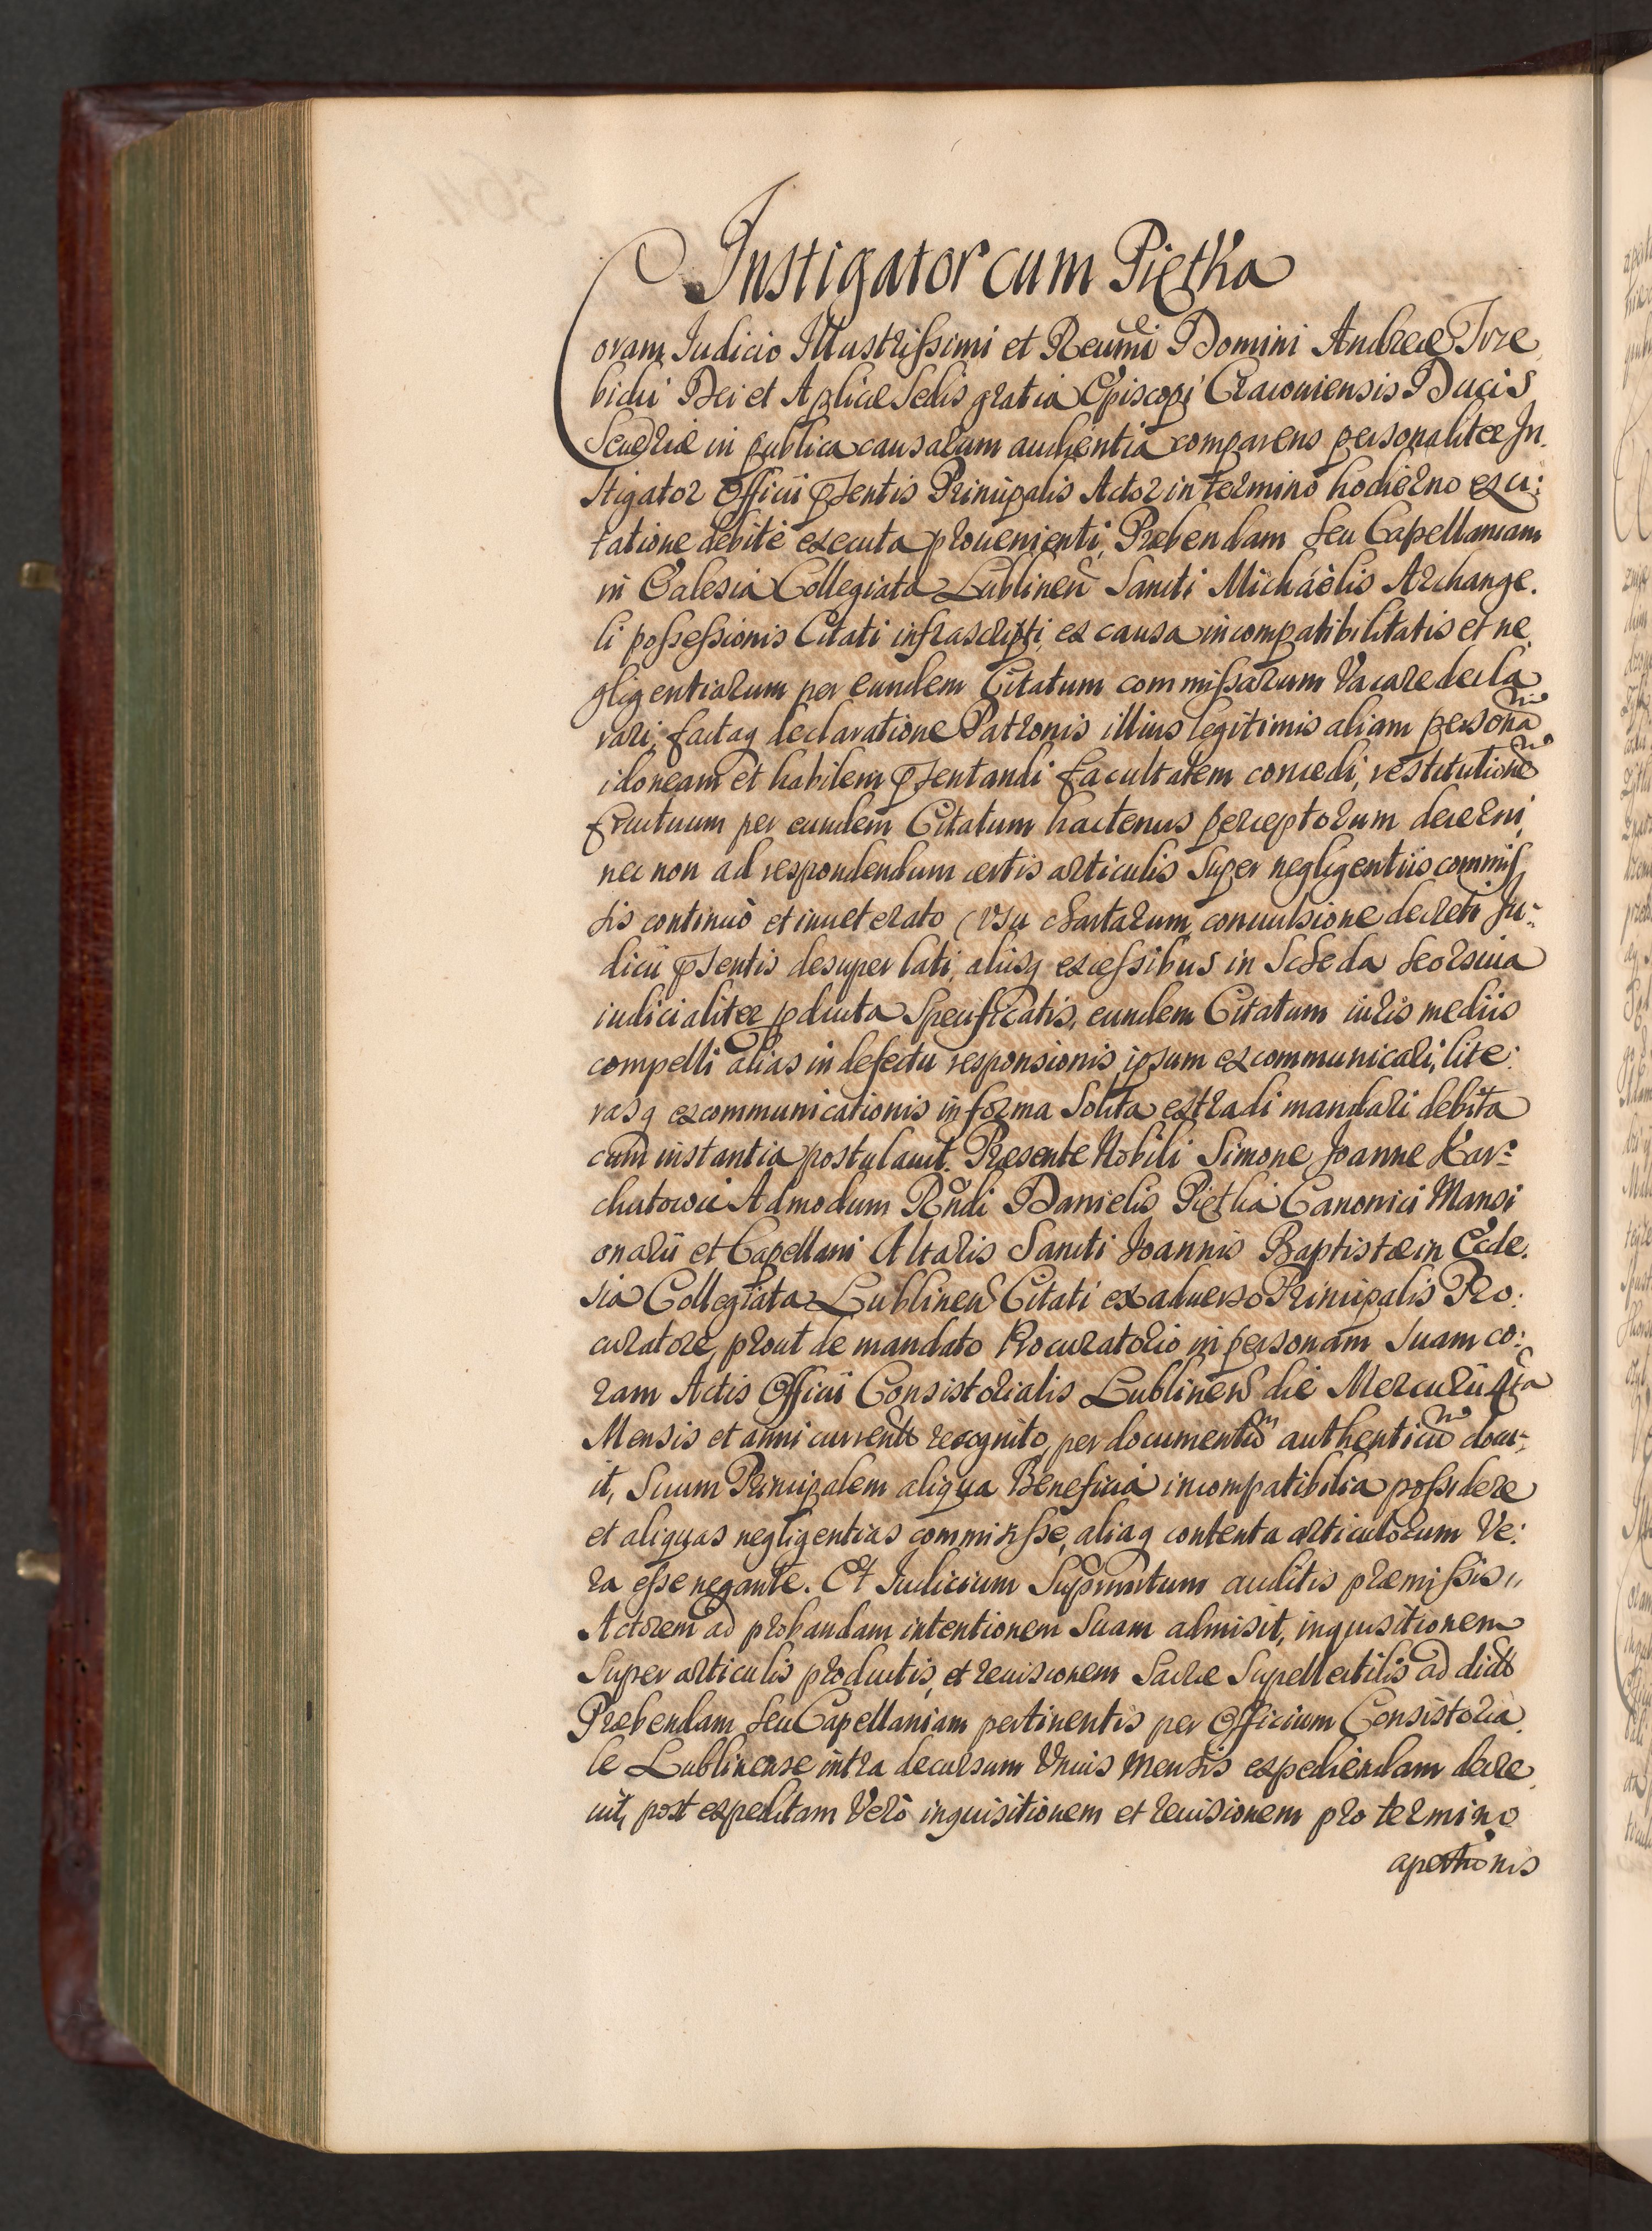 Instigator cum Piętka
Coram Judicio Illustrissimi et Reũmi Domini Andreæ Trze,
bicki Dei et Aplicæ Sedis gratia Episcopi Cracouiensis Ducis
Seueriæ in publica causarum audientia comparens personaliter In,
stigator Officii pñsentis Principalis Actor in termino hodierno ex ci:
tatione debite executa proueniente, Præbendam seu Capellaniam
in Eclesia Collegiata Lublineñ Sancti Michaëlis Archange,
li possessionis Citati infrascripti, ex causa incompatibilitatis et ne,
gligentiarum per eundem Citatum commissarum Vacare decla
rari, factaq declaratione Patronis illius legitimis aliam personã
idoneam et habilem pñsentandi facultatem concedi, restitutionẽ
fructuum per eundem Citatum hactenus perceptorum decerni,
nec non ad respondendum certis articulis super negligentiis commis
sis continuò et inueterato usu chartarum, conuulsione decreti Ju:
dicii pñsentis desuper lati, aliisq excessibus in Scheda seorsiua
iudicialiter pducta specificatis, eundem Citatum iuris mediis
compelli alias in defectu responsionis ipsum excommunicari, lite:
rasq excommunicationis in forma solita extradi mandari debita
cum instantia postulauit. Præsente Nobili Simone Joanne Kar:
chutowic Admodum Rñdi Danielis Piętka Canonici Mansi
onarii et Capellani Altaris Sancti Joannis Baptistæ in Eccle,
sia Collegiata Lublineñ Citati ex aduerso Principalis Pro:
curatore, prout de mandato Procuratorio in personam suam co:
ram Actis Officii Consistorialis Lublineñ die Mercurii 4ta
Mensis et anni currentis recognito, per documentũ authenticũ docu:
it, suum Principalem aliqua Beneficia incompatibilia possidere
et aliquas negligentias commisisse, aliaq contenta articulorum Ve:
ra esse negante. Et Judicium Supramtum auditis præmissis,,
Actorem ad probandam intentionem suam admisit, inquisitionem
super articulis productis, et reuisionem Sacræ Supellectilis ad dictã
Præbendam seu Capellaniam pertinentis per Officium Consistoria,
le Lublinense intra decursum Vnius mensis expediendam decre,
uit, post expeditam Verò inquisitionem et reuisionem pro termino
apertionis